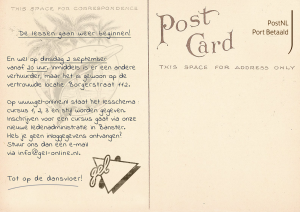 THIS SPACE FOR CORRESPONDENCE
De lessen gaan weer beginnen!
En wel op dinsdag 2 september
vanaf 20 uur. Inmiddels is er een andere
verhuurder, maar het is gewoon op de
vertrouwde locatie Borgerstraat 112.
Op www.gel-online.nl staat het lesschema
cursus 1, 2, 3 en stijl worden gegeven.
Inschrijven voor een cursus gaat via onze
nieuwe ledenadministratie in Banster.
Heb je geen inloggegevens ontvangen?
Stuur ons dan een e-mail
via info@gel-online.nl.
Tot op de dansvloer!
gel
Post
Card
PostNL
Port Betaald
THIS SPACE FOR ADDRESS ONLY